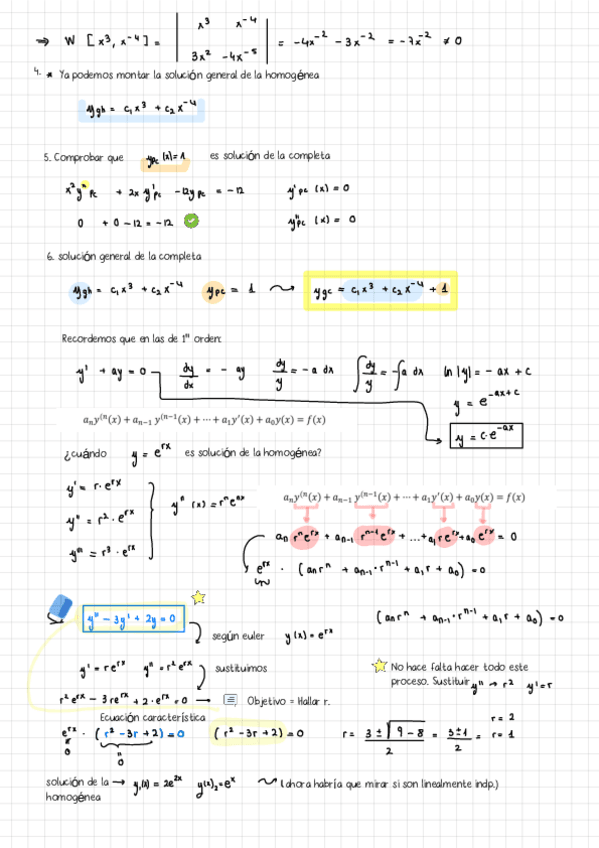 ⇒ W [x³, x⁻⁴] = | x³ x⁻⁴ | = -4x⁻² - 3x⁻² = -7x⁻² ≠ 0
3x² -4x⁻⁵
4. * Ya podemos montar la solución general de la homogénea
ygh = c₁x³ + c₂x⁻⁴
5. Comprobar que ypc (x) = 1 es solución de la completa
x²y''pc + 2x y'pc - 12ypc = -12 y'pc (x) = 0
0 + 0 - 12 = -12 y''pc (x) = 0
6. solución general de la completa
ygh = c₁x³ + c₂x⁻⁴ ypc = 1 → ygc = c₁x³ + c₂x⁻⁴ + 1
Recordemos que en las de 1ᵉʳ orden:
y' + ay = 0 dy/dx = -ay dy/y = -a dx ∫dy/y = ∫-a dx ln|y| = -ax + c
y = e^(-ax+c)
y = c·e^(-ax)
aₙy⁽ⁿ(x) + aₙ₋₁ y⁽ⁿ⁻¹(x) + ⋯ + a₁y'(x) + a₀y(x) = f(x)
¿cuándo y = e^(rx) es solución de la homogénea?
y' = r·e^(rx)
y'' = r²·e^(rx)
y''' = r³·e^(rx)
yⁿ (x) = rⁿe^(ax)
aₙy⁽ⁿ(x) + aₙ₋₁ y⁽ⁿ⁻¹(x) + ⋯ + a₁y'(x) + a₀y(x) = f(x)
aₙ rⁿe^(rx) + aₙ₋₁ rⁿ⁻¹e^(rx) + ... + a₁ r e^(rx) + a₀ e^(rx) = 0
e^(rx) · (aₙrⁿ + aₙ₋₁·rⁿ⁻¹ + a₁r + a₀) = 0
y'' - 3y' + 2y = 0
según euler y(x) = e^(rx)
(aₙrⁿ + aₙ₋₁·rⁿ⁻¹ + a₁r + a₀) = 0
y' = re^(rx) y'' = r²e^(rx) sustituimos
No hace falta hacer todo este
proceso. Sustituir y'' → r² y' = r
r²e^(rx) - 3re^(rx) + 2·e^(rx) = 0 → Objetivo = Hallar r.
Ecuación característica
e^(rx) · (r² - 3r + 2) = 0 (r² - 3r + 2) = 0 r = (3 ± √(9 - 8))/2 = (3 ± 1)/2 = r = 2
r = 1
≠
0
0
solución de la → y₁(x) = 2e^(2x) y(x)₂ = e^x (ahora habría que mirar si son linealmente indp.)
homogénea